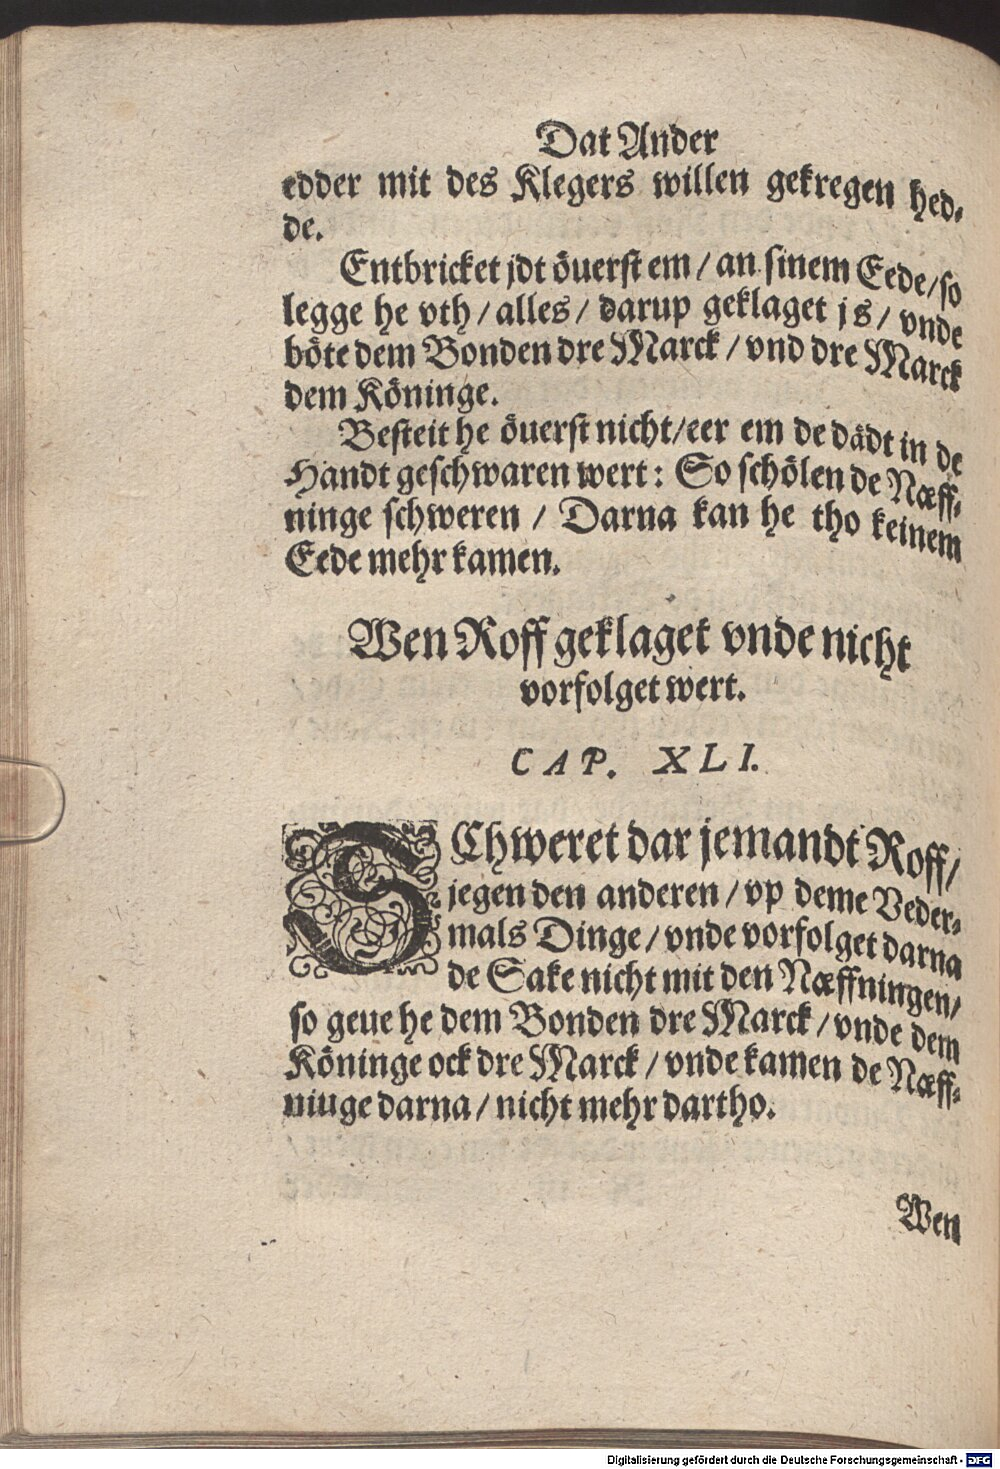 Dat Ander
edder mit des Klegers willen gekregen hed⸗
de.
Entbricket jdt öuerst em / an sinem Eede / so
legge he vth / alles / darup geklaget js / vnde
böte dem Bonden dre Marck / vnd dre Marck
dem Köninge.
Besteit he öuerst nicht / eer em de dädt in de
Handt geschwaren wert: So schölen de Næff⸗
ninge schweren / Darna kan he tho keinem
Eede mehr kamen.
Wen Roff geklaget vnde nicht
vorfolget wert.
CAP. XLI.
SChweret dar jemandt Roff /
jegen den anderen / vp deme Veder⸗
mals Dinge / vnde vorfolget darna
de Sake nicht mit den Næffningen /
so geue he dem Bonden dre Marck / vnde dem
Köninge ock dre Marck / vnde kamen de Næff⸗
niuge darna / nicht mehr dartho.
Wen
Digitalisierung gefördert durch die Deutsche Forschungsgemeinschaft - DFG